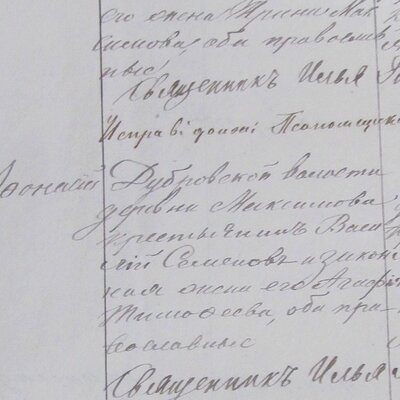 его жена Ирина Мак
симова, оба православ
ные
Священникъ Илья
Исправ. долж. Псаломщика
Афонасій
Дубровской волости
деревни Максимова
крестьянинъ Васи
лій Семеновъ и закон
ная жена его Агафія
Тимофеева, оба пра-
вославные
Священникъ Илья